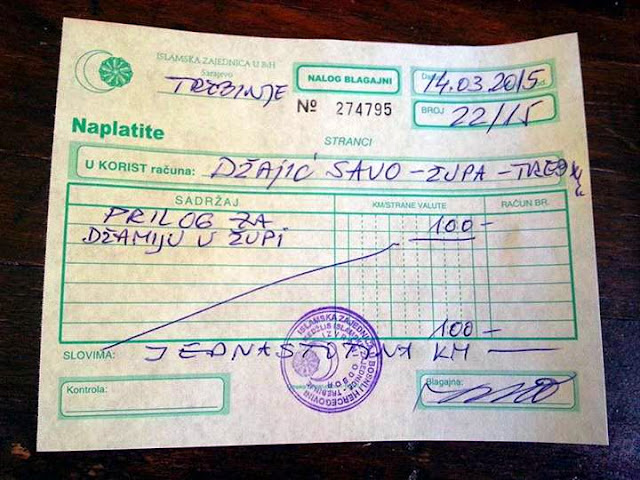 ISLAMSKA ZAJEDNICA U BiH
Sarajevo
TREBINJE
NALOG BLAGAJNI
№ 274795
14.03.2015
BROJ 22/15
Naplatite
STRANCI
U KORIST računa: DŽAJIĆ SAVO - ŽUPA - TREB
SADRŽAJ KM/STRANE VALUTE RAČUN BR.
PRILOG ZA 100-
DŽAMIJU U ŽUPI
100-
SLOVIMA: JEDNASTOTINA KM
Kontrola: Blagajna:
ISLAMSKA ZAJEDNICA U BOSNI I HERCEGOVINI
MEDŽLIS ISLAMSKE ZAJEDNICE TREBINJE
IZVRŠNI ODBOR